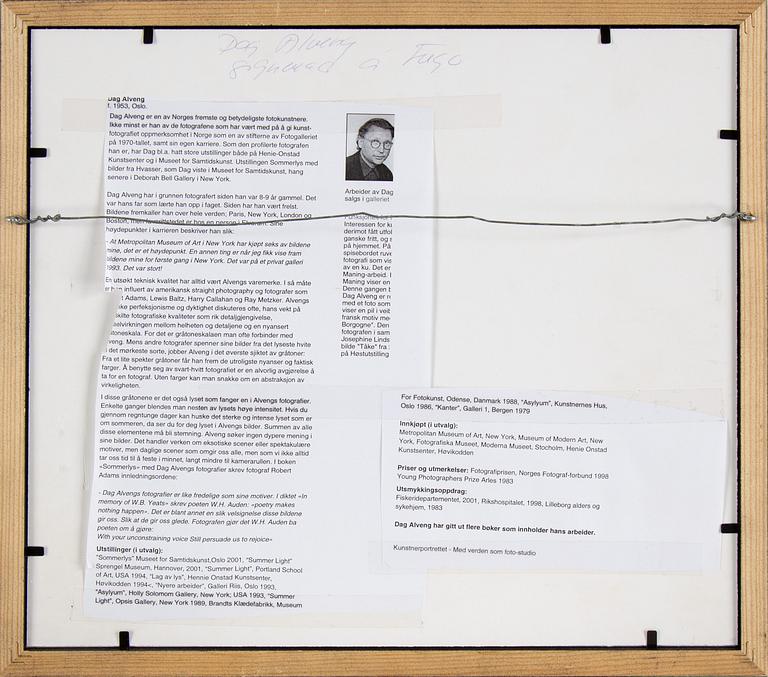 Dag Alveng
signerad a Fuge
Dag Alveng
f. 1953, Oslo.
Dag Alveng er en av Norges fremste og betydeligste fotokunstnere.
Ikke minst er han av de fotografene som har vært med på å gi kunst-
fotografiet oppmerksomhet i Norge som en av stifterne av Fotogalleriet
på 1970-tallet, samt sin egen karriere. Som den profilerte fotografen
han er, har Dag bl.a. hatt store utstillinger både på Henie-Onstad
Kunstsenter og i Museet for Samtidskunst. Utstillingen Sommerlys med
bilder fra Hvasser, som Dag viste i Museet for Samtidskunst, hang
senere i Deborah Bell Gallery i New York.
Dag Alveng har i grunnen fotografert siden han var 8-9 år gammel. Det
var hans far som lærte han opp i faget. Siden har han vært frelst.
Bildene fremkaller han over hele verden; Paris, New York, London og
Boston, men favorittstedet er hos en person i Elverum. Sine
høydepunkter i karrieren beskriver han slik:
- At Metropolitan Museum of Art i New York har kjøpt seks av bildene
mine, det er et høydepunkt. En annen ting er når jeg fikk vise fram
bildene mine for første gang i New York. Det var på et privat galleri
1993. Det var stort!
En utsøkt teknisk kvalitet har alltid vært Alvengs varemerke. I så måte
er han influert av amerikansk straight photography og fotografer som
Adams, Lewis Baltz, Harry Callahan og Ray Metzker. Alvengs
perfeksjonisme og dyktighet diskuteres ofte, hans vekt på
fotografiske kvaliteter som rik detaljgjengivelse,
vekselvirkningen mellom helheten og detaljene og en nyansert
gråtoneskala. For det er gråtoneskalaen man ofte forbinder med
Alveng. Mens andre fotografer spenner sine bilder fra det lyseste hvite
til det mørkeste sorte, jobber Alveng i det øverste sjiktet av gråtoner:
Fra et lite spekter gråtoner får han frem de utroligste nyanser og faktisk
farger. Å benytte seg av svart-hvitt fotografiet er en alvorlig avgjørelse å
ta for en fotograf. Uten farger kan man snakke om en abstraksjon av
virkeligheten.
I disse gråtonene er det også lyset som fanger en i Alvengs fotografier.
Enkelte ganger blendes man nesten av lysets høye intensitet. Hvis du
gjennom regntunge dager kan huske det sterke og intense lyset som er
om sommeren, da ser du for deg lyset i Alvengs bilder. Summen av alle
disse elementene må bli stemning. Alveng søker ingen dypere mening i
sine bilder. Det handler verken om eksotiske scener eller spektakulære
motiver, men daglige scener som omgir oss alle, men som vi ikke alltid
tar oss tid til å feste i minnet, langt mindre til kamerarullen. I boken
«Sommerlys» med Dag Alvengs fotografier skrev fotograf Robert
Adams innledningsordene:
- Dag Alvengs fotografier er like fredelige som sine motiver. I diktet «In
memory of W.B. Yeats» skrev poeten W.H. Auden: «poetry makes
nothing happen». Det er blant annet en slik velsignelse disse bildene
gir oss. Slik at de gir oss glede. Fotografien gjør det W.H. Auden ba
poeten om å gjøre:
With your unconstraining voice Still persuade us to rejoice»
Utstillinger (i utvalg):
"Sommerlys" Museet for Samtidskunst,Oslo 2001, "Summer Light"
Sprengel Museum, Hannover, 2001, "Summer Light", Portland School
of Art, USA 1994, "Lag av lys", Hennie Onstad Kunstsenter,
Høvikodden 1994<, "Nyere arbeider", Galleri Riis, Oslo 1993,
"Asylyum", Holly Solomom Gallery, New York; USA 1993, "Summer
Light", Opsis Gallery, New York 1989, Brandts Klædefabrikk, Museum
Arbeider av Dag
salgs i galleriet
Funksjonen for
Interessen for k
derimot fått utfol
ganske fritt, og s
på hjemmet. På
spisebordet ruve
fotografi som vis
av en ku. Det er
Maning-arbeid. I
Maning viser en
Denne gangen b
Dag Alveng er r
med et foto som
viser en pil i veit
fransk motiv me
Borgogne". Den
fotografen i sam
Josephine Linds
bilde "Tåke" fra
på Høstutstilling
For Fotokunst, Odense, Danmark 1988, "Asylyum", Kunstnernes Hus,
Oslo 1986, "Kanter", Galleri 1, Bergen 1979
Innkjøpt (i utvalg):
Metropolitan Museum of Art, New York, Museum of Modern Art, New
York, Fotografiska Museet, Moderna Museet, Stocholm, Henie Onstad
Kunstsenter, Høvikodden
Priser og utmerkelser: Fotografiprisen, Norges Fotograf-forbund 1998
Young Photographers Prize Arles 1983
Utsmykkingsoppdrag:
Fiskeridepartementet, 2001, Rikshospitalet, 1998, Lilleborg alders og
sykehjem, 1983
Dag Alveng har gitt ut flere bøker som innholder hans arbeider.
Kunstnerportrettet - Med verden som foto-studio